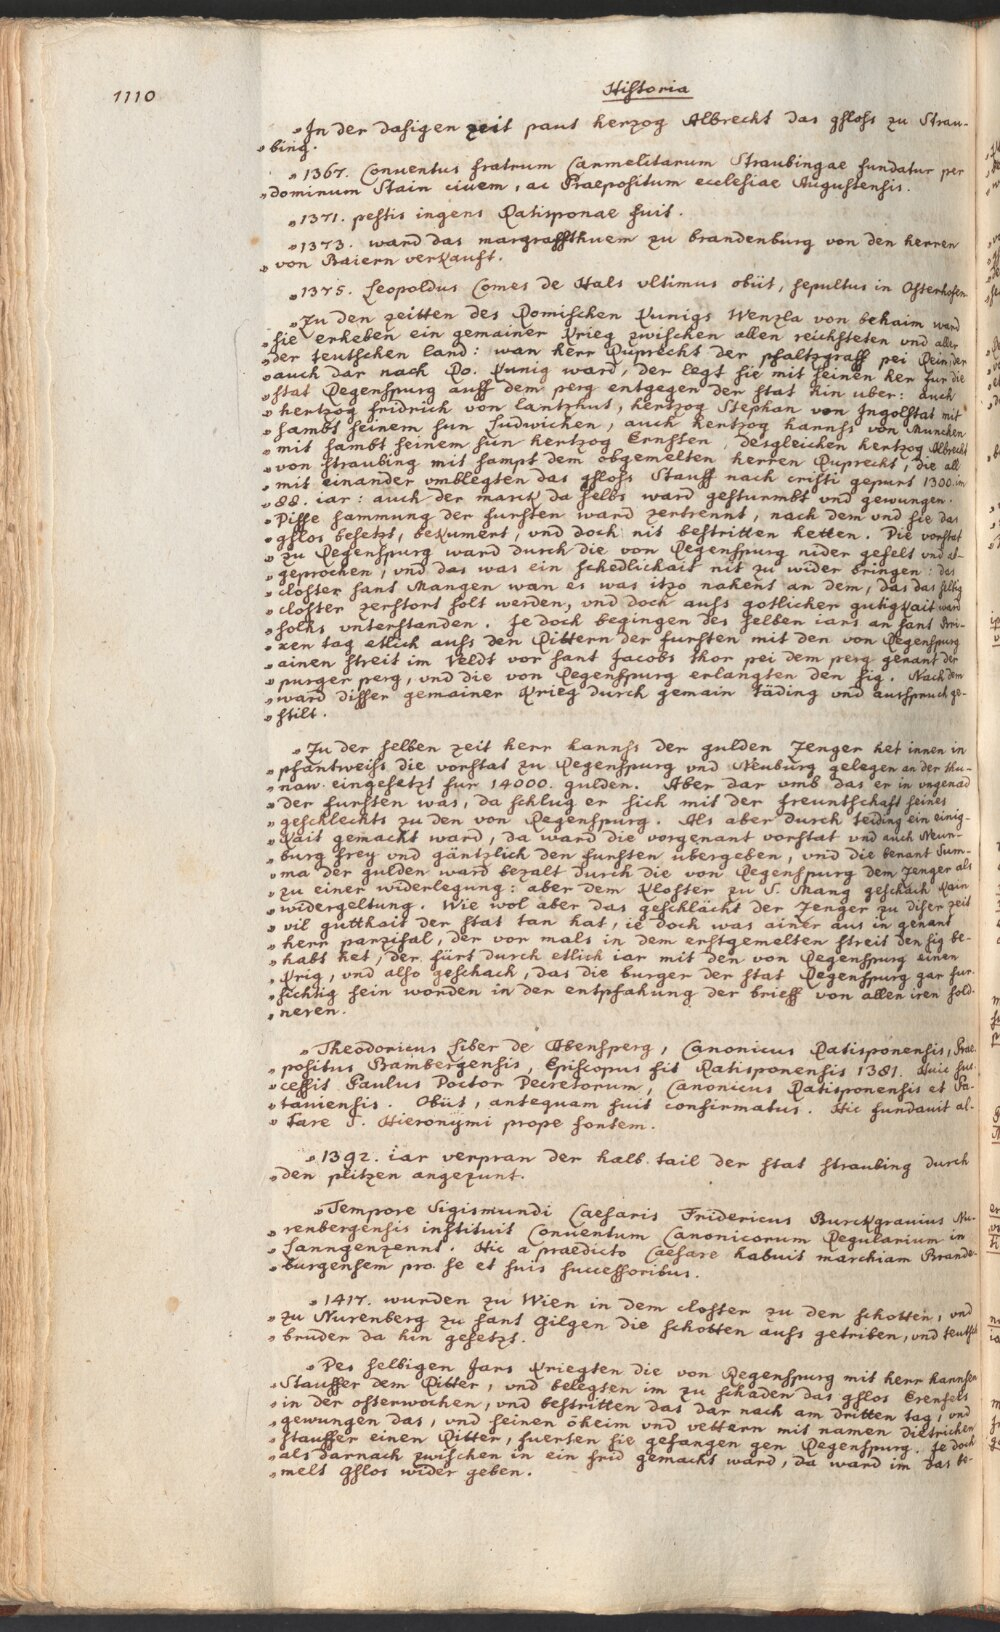 1110
Historia
„In der dasigen zeit paut herzog Albrecht das gschloss zu Strau-
„bing.
„1367. Conuentus fratrum Carmelitarum Straubingae fundatur per
„dominum Stain ciuem, ac Praepositum ecclesiae Augustensis.
„1371. pestis ingens Ratisponae fuit.
„1373. ward das margraffthuem zu brandenburg von den herren
„von Baiern verkauft.
„1375. Leopoldus Comes de Hals vltimus obiit, sepultus in Osterhofen.
„Zu den zeitten des Romischen Kunigs Wenzla von behaim ward
„sie erheben ein gemainer Krieg zwischen allen reichsteten und aller
„der teutschen land: wan herr Ruprecht der pfaltzgraff pei Rein, der
„auch dar nach Ro. Kunig ward, der legt sie mit seinen her fur die
„stat Regenspurg auff dem perg entgegen der stat hin uber: auch
„hertzog fridrich von lantzhut, hertzog Stephan von Ingolstat mit
„sambt seinem sun Ludwichen, auch hertzog hannss von Munchen
„mit sambt seinem sun hertzog Ernsten, desgleichen hertzog Albrecht
„von straubing mit sampt dem obgemelten herren Ruprecht, die all
„mit einander vmblegten das gschloss Stauff nach cristi gepurt 1300. im
„88. iar: auch der marck da selbs ward gesturmbt vnd gewungen.
„Disse sammung der fursten ward zertrennt, nach dem vnd sie das
„gschlos besetzt, bekumert, vnd doch nit bestritten hetten. Die vorstat
„zu Regenspurg ward durch die von Regenspurg nider gefelt vnd ab-
„geprochen, vnd das was ein schedlichait nit zu wider bringen: das
„closter sant Mangen wan es was itzo nahent an dem, das das selbig
„closter zerstort solt werden, vnd doch auss gotlicher gutigkait ward
„solchs vnterstanden. Je doch begingen des selben iars an sant Prei-
„xen tag etlich auss den Rittern der fursten mit den von Regenspurg
„ainen streit im Veldt vor sant Jacobs thor pei dem perg genant der
„purger perg, vnd die von Regenspurg erlangten den sig. Nach dem
„ward disser gemainer Krieg durch gemain täding vnd aussspruch ge-
„stilt.
„Zu der selben zeit herr hannss der gulden Zenger het innen in
„pfantweiss die vorstat zu Regenspurg vnd Neuburg gelegen an der thu-
„naw eingesetzt fur 14000. gulden. Aber dar vmb das er in vngenad
„der fursten was, da schlug er sich mit der freuntschaft seines
„geschlechts zu den von Regenspurg. Als aber durch teiding ein einig-
„kait gemacht ward, da ward die vorgenant vorstat vnd auch Neun-
„burg frey vnd gäntzlich den fursten ubergeben, vnd die benant Sum-
„ma der gulden ward bezalt durch die von Regenspurg dem Zenger als
„zu einer widerlegung: aber dem Kloster zu S. Mang geschach kain
„widergeltung. Wie wol aber das geschlächt der Zenger zu diser zeit
„vil gutthait der stat tan hat, ie doch was ainer aus in genant
„herr parzifal, der vor mals in dem erstgemelten streit den sig be-
„habt het, der fürt durch etlich iar mit den von Regenspurg einen
„Krig, vnd also geschach, das die burger der stat Regenspurg gar fur-
„sichtig sein worden in der entpfahung der brieff von allen iren sold-
„neren.
„Theodoricus Liber de Abensperg, Canonicus Ratisponensis, Prae-
„positus Bambergensis, Episcopus fit Ratisponensis 1381. Huic suc-
„cessit Paulus Doctor Decretorum, Canonicus Ratisponensis et Pa-
„tauiensis. Obiit, antequam fuit confirmatus. Hic fundauit al-
„tare S. Hieronymi prope fontem.
„1392. iar verpran der halb tail der stat straubing durch
„den plitzen angezunt.
„Tempore Sigismundi Caesaris Fridericus Burckgrauius Nu-
„renbergensis instituit Conuentum Canonicorum Regularium in
„Lanngenzennt. Hic a praedicto Caesare habuit marchiam Brande-
„burgensem pro se et suis successoribus.
„1417. wurden zu Wien in dem closter zu den schotten, vnd
„zu Nurenberg zu sant Gilgen die schotten auss getriben, vnd teutsch
„bruder da hin gesetzt.
„Des selbigen Jars kriegten die von Regenspurg mit herr hannsen
„Stauffer dem Ritter, vnd belegten im zu schaden das gschlos Erenfels
„in der osterwochen, vnd bestritten das dar nach am dritten tag, vnd
„gewungen das, vnd seinen öheim vnd vettern mit namen dietrichen
„stauffer einen Ritter, fuerten sie gefangen gen Regenspurg. Je doch
„als darnach zwischen in ein frid gemacht ward, da ward im das be-
„melt gschlos wider geben.